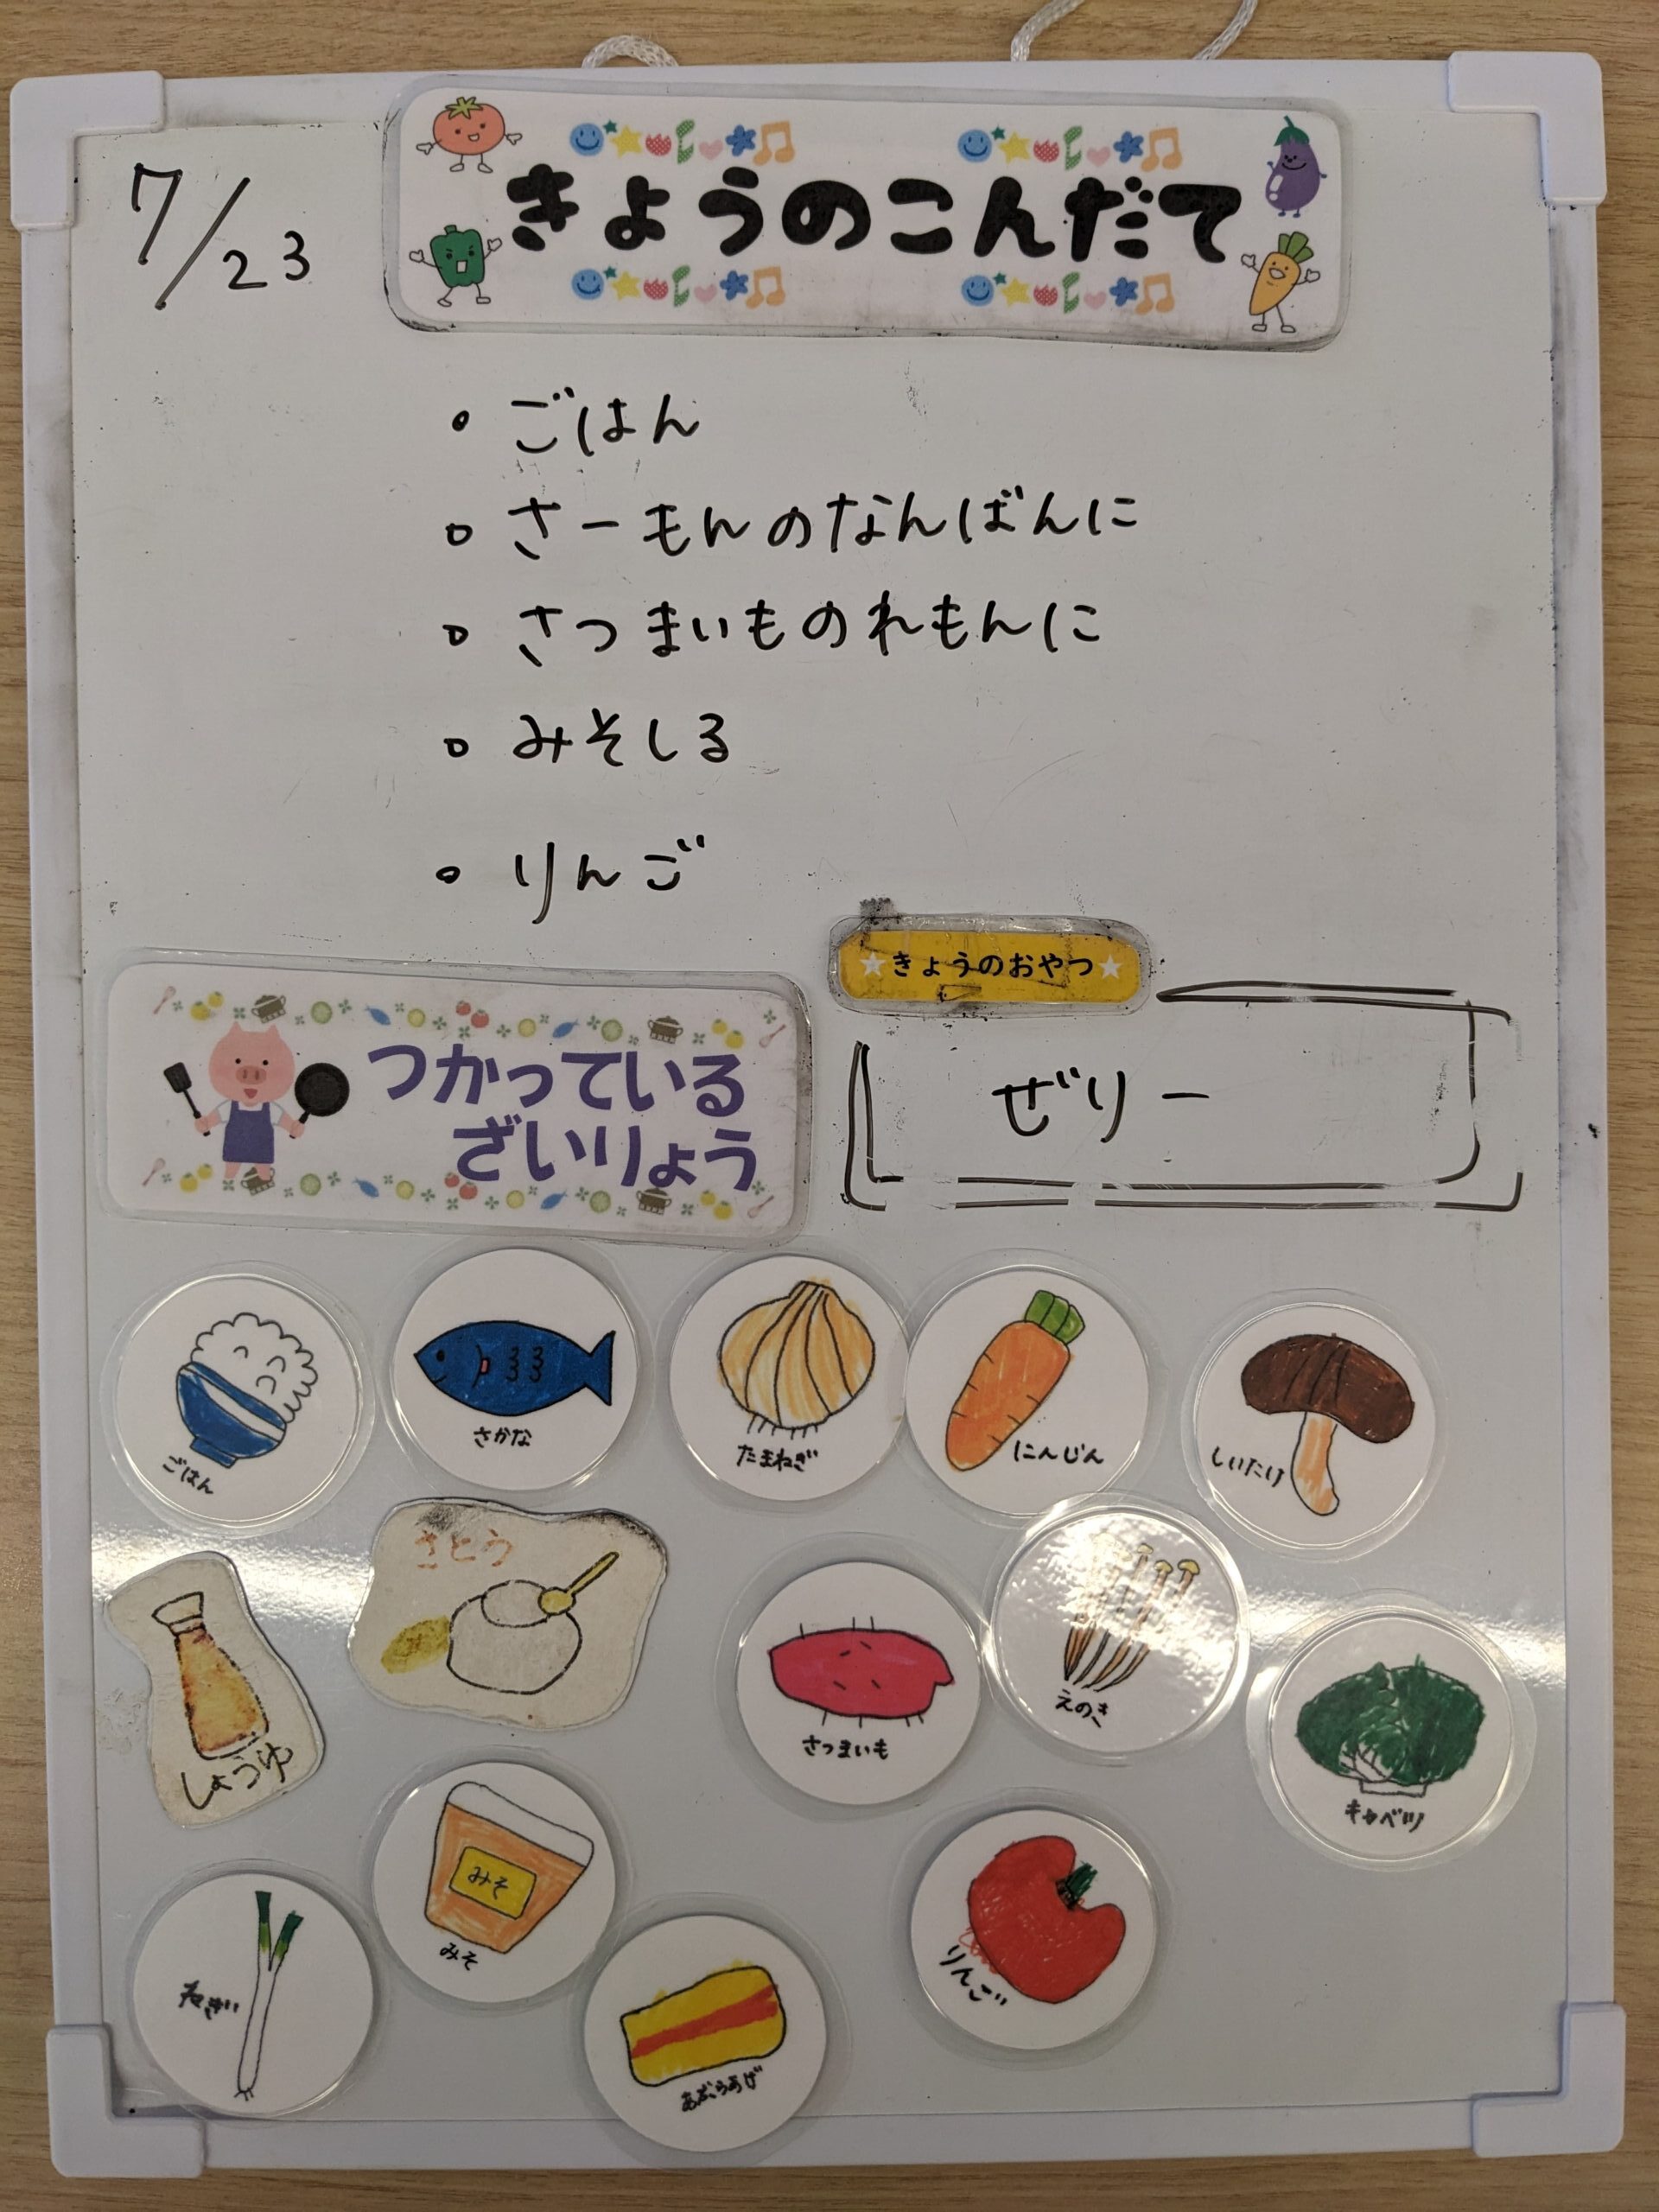 7/23
きょうのこんだて
• ごはん
• さーもんのなんばんに
• さつまいものれもんに
• みそしる
• りんご
★きょうのおやつ★
ぜりー
つかっている
ざいりょう
ごはん
さかな
たまねぎ
にんじん
しいたけ
しょうゆ
さとう
さつまいも
えのき
キャベツ
ねぎ
みそ
みそ
あぶらあげ
りんご